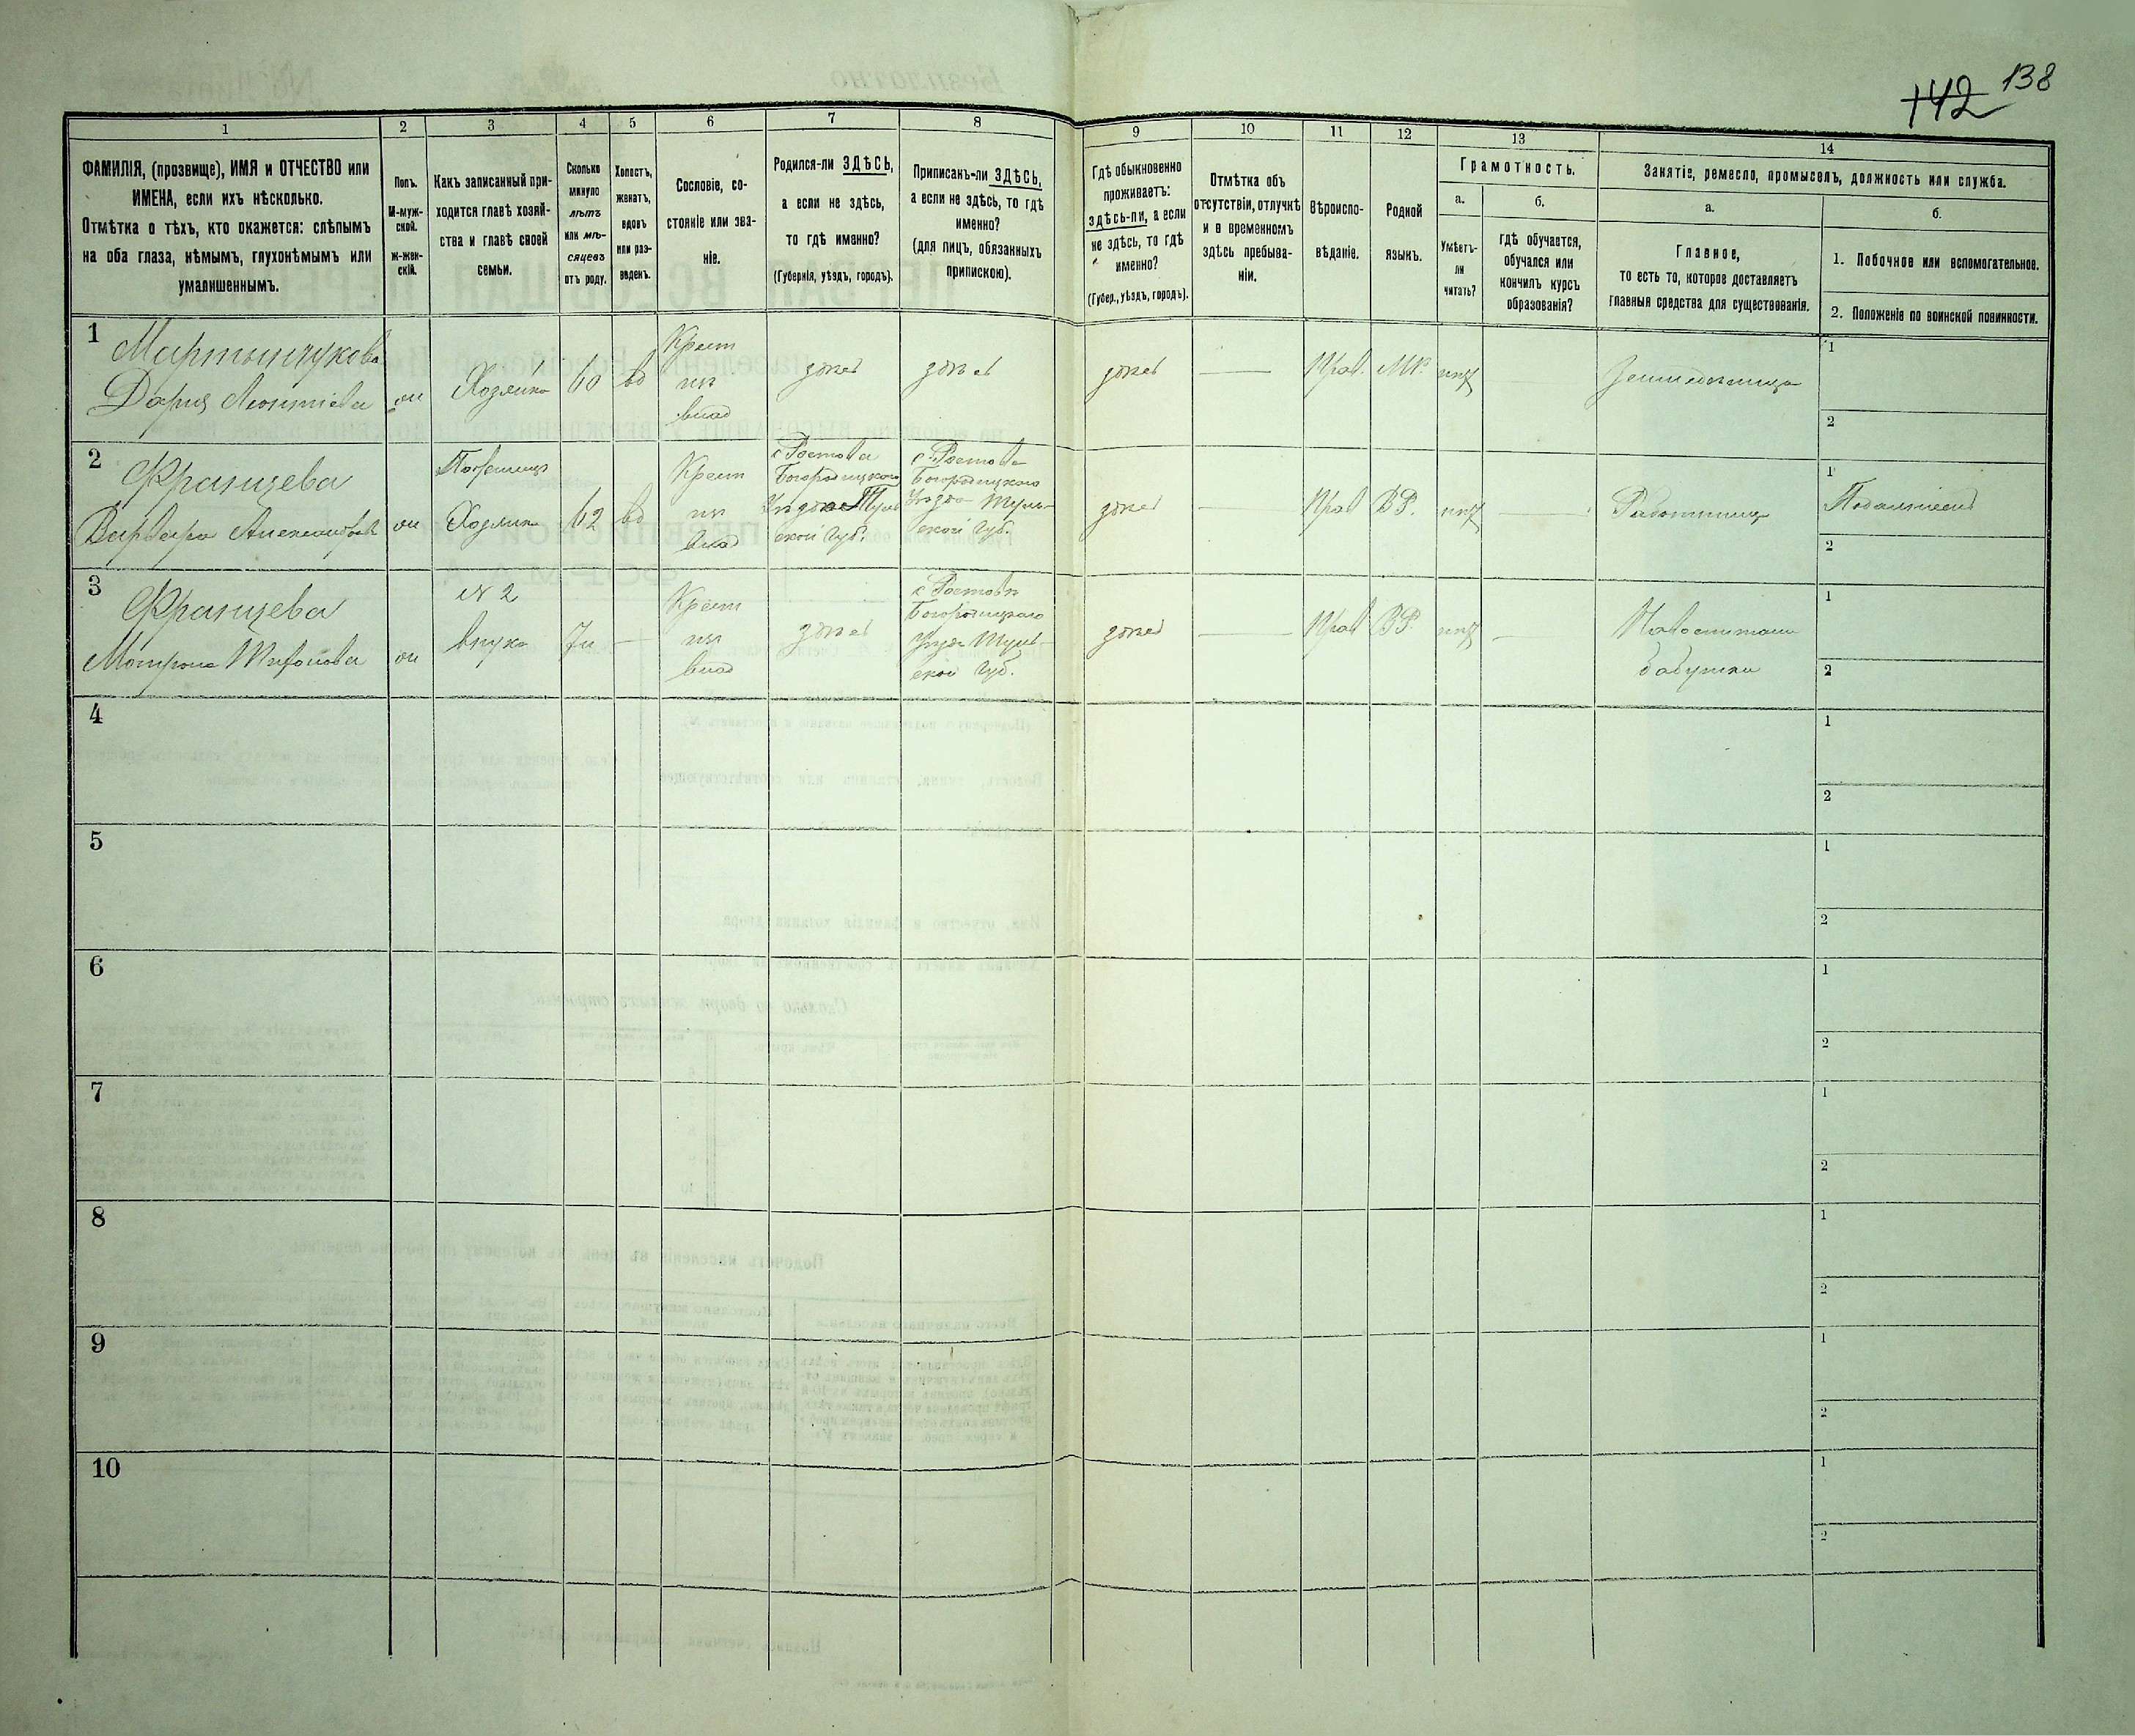 142 138
1 2 3 4 5 6 7 8 9 10 11 12 13 14
ФАМИЛІЯ, (прозвище), ИМЯ и ОТЧЕСТВО или
ИМЕНА, если ихъ нѣсколько.
Отмѣтка о тѣхъ, кто окажется: слѣпымъ
на оба глаза, нѣмымъ, глухонѣмымъ или
умалишеннымъ.
Полъ.
М-муж-
ской.
ж-жен-
скій.
Какъ записанный при-
ходится главѣ хозяй-
ства и главѣ своей
семьи.
Сколько
минуло
лѣтъ
или мѣ-
сяцевъ
отъ роду.
Холостъ,
женатъ,
вдовъ
или раз-
веденъ.
Сословіе, со-
стояніе или зва-
ніе.
Родился-ли ЗДѢСЬ,
а если не здѣсь,
то гдѣ именно?
(Губернія, уѣздъ, городъ).
Приписанъ-ли ЗДѢСЬ,
а если не здѣсь, то гдѣ
именно?
(для лицъ, обязанныхъ
припискою).
Гдѣ обыкновенно
проживаетъ:
здѣсь-ли, а если
не здѣсь, то гдѣ
именно?
(Губер., уѣздъ, городъ).
Отмѣтка объ
отсутствіи, отлучкѣ
и о временномъ
здѣсь пребыва-
ніи.
Вѣроиспо-
вѣданіе.
Родной
языкъ.
Грамотность.
а.
Умѣетъ-
ли
читать?
б.
гдѣ обучается,
обучался или
кончилъ курсъ
образованія?
Занятіе, ремесло, промыселъ, должность или служба.
а.
Главное,
то есть то, которое доставляетъ
главныя средства для существованія.
б.
1. Побочное или вспомогательное.
2. Положеніе по воинской повинности.
1
Мартынчукова
Дарія Леонтіева
Хозяйка
60
вд
Крест
влад
здѣсь
здѣсь
здѣсь
Прав.
МР.
нѣт
1
2
2
Францева
Варвара
Хозяйка
62
вд
Крест
влад
с Ростова
Богородицкого
Уѣзда Туль
ской губ.
с Ростова
Богородицкого
Уѣзда Туль-
ской губ.
здѣсь
Прав
ВР.
нѣт
Работница
1
2
3
Францева
Матрона
№ 2
внука
7
Крест
влад
здѣсь
с Ростова
Богородицкаго
Уѣзда Туль-
ской губ.
здѣсь
Прав
ВР.
нѣт
бабушки
1
2
4
1
2
5
1
2
6
1
2
7
1
2
8
1
2
9
1
2
10
1
2